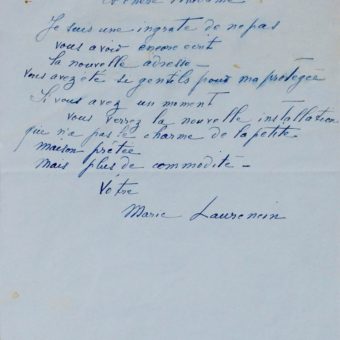 chère Madame
Je suis une ingrate de ne pas
vous avoir encore écrit
la nouvelle adresse –
vous avez été si gentils pour ma protégée
Si vous avez un moment
vous verrez la nouvelle installation
que n'a pas le charme de la petite
maison prêtée
mais plus de commodité –
Votre
Marie Laurencin